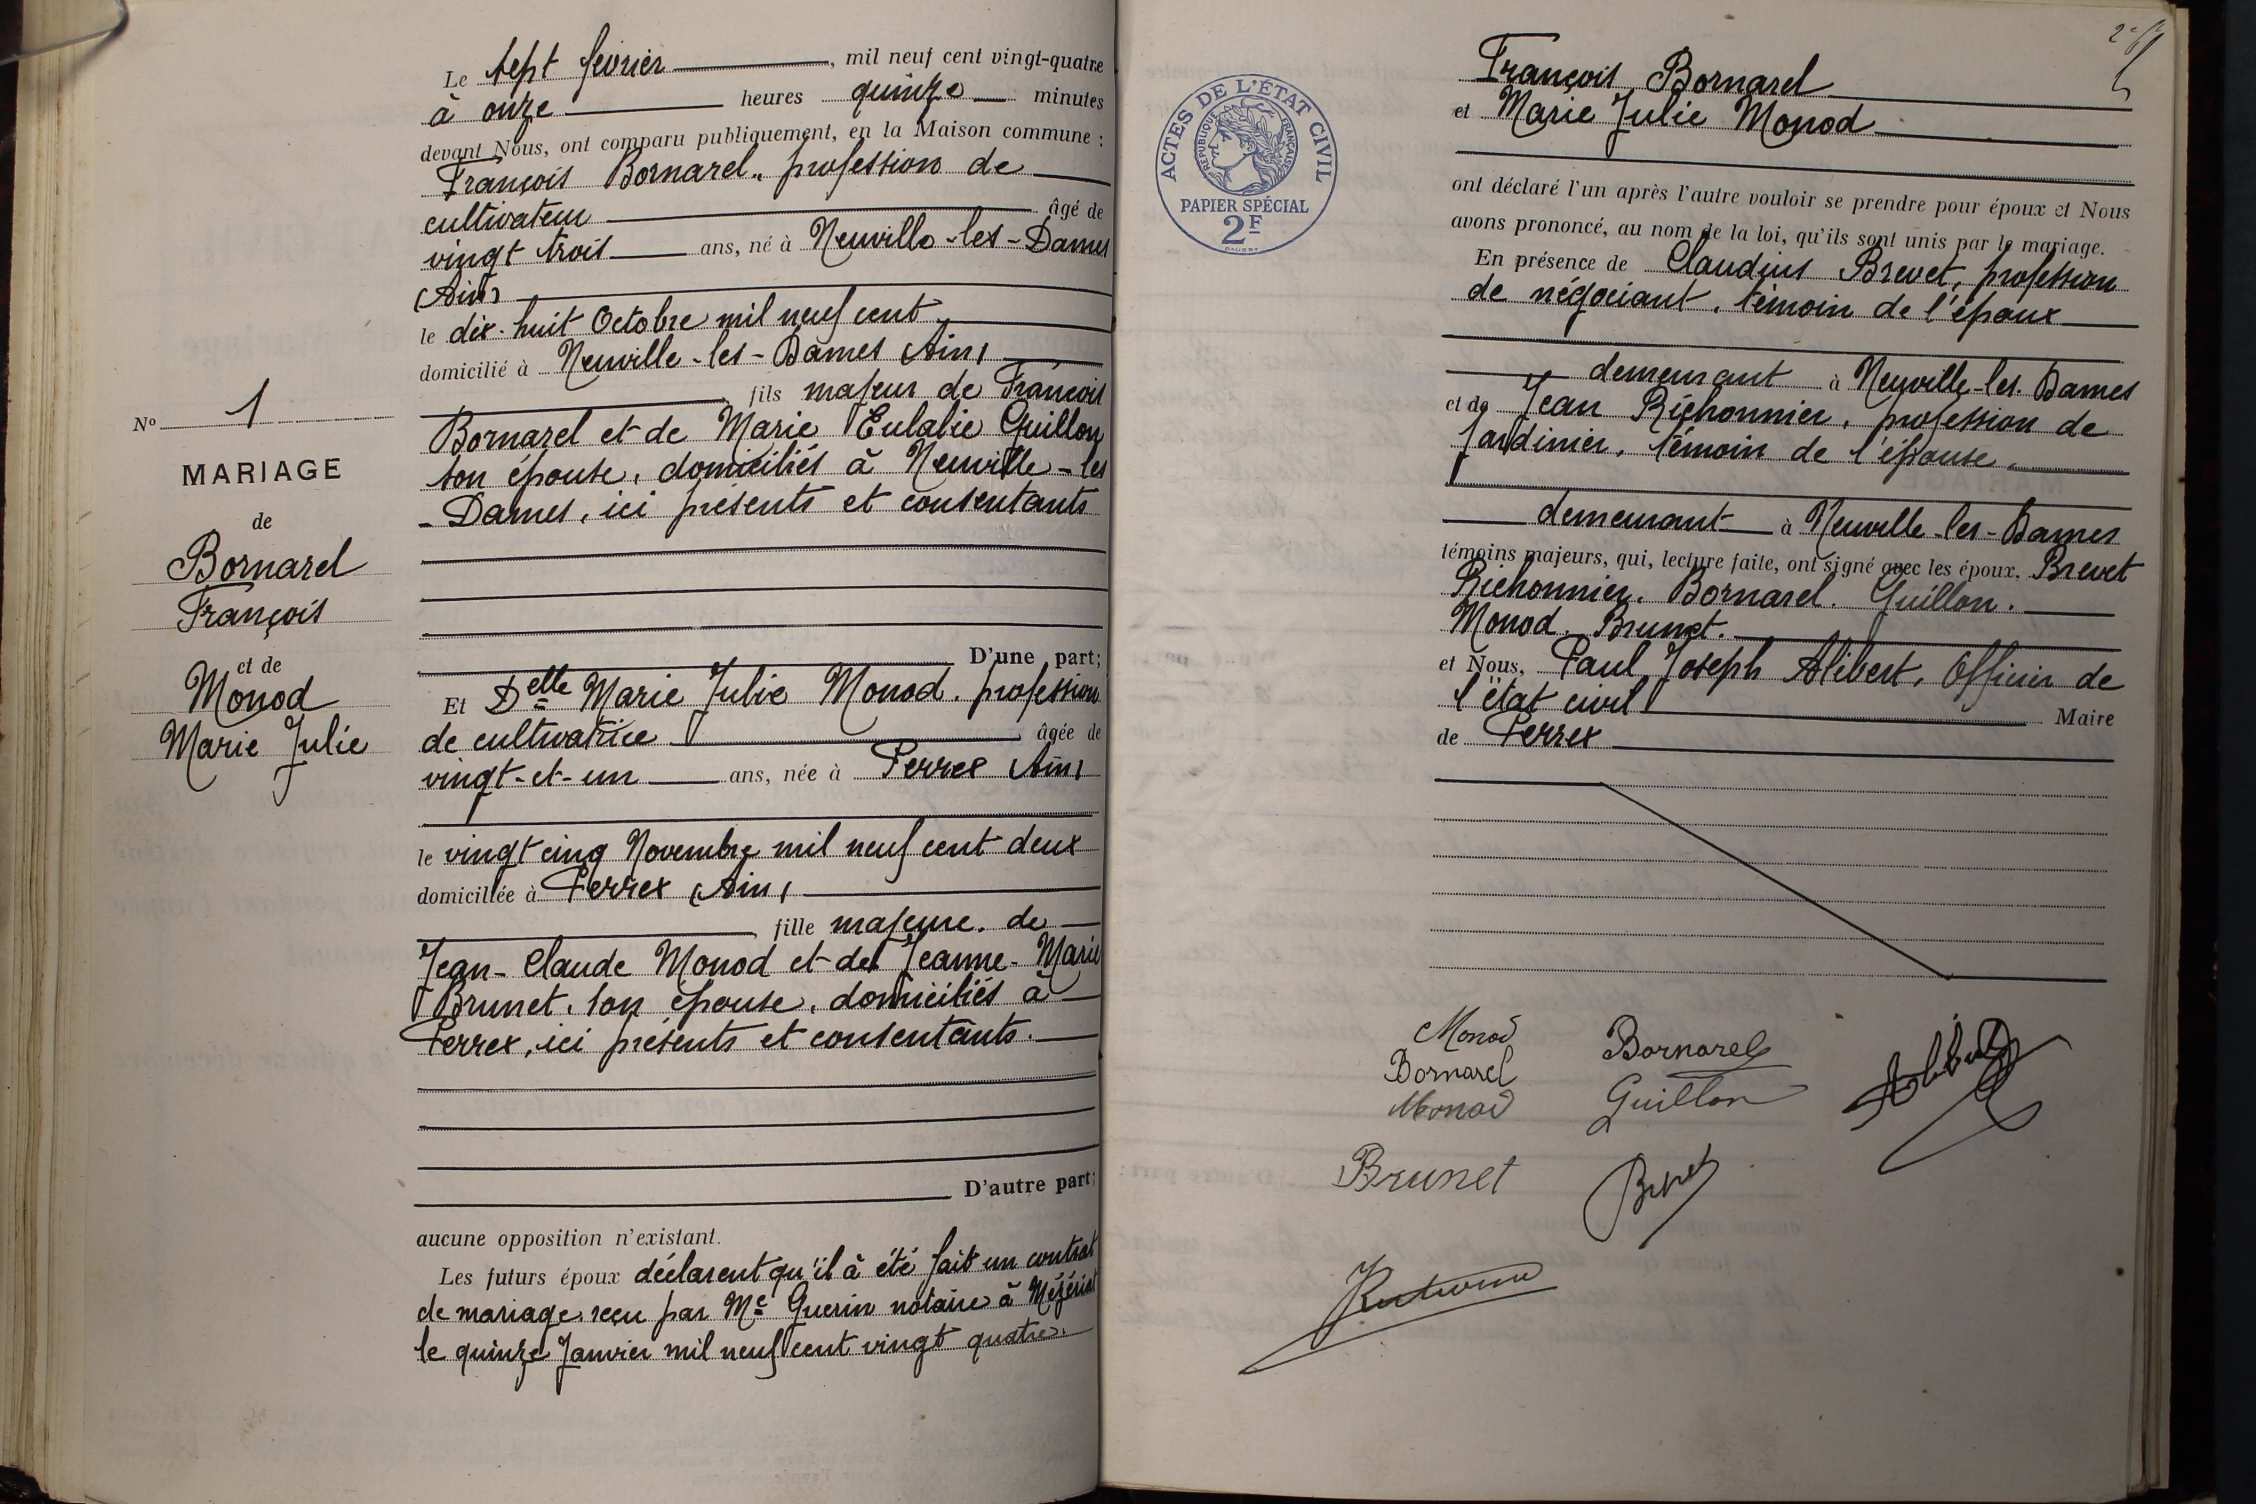 Le sept février, mil neuf cent vingt-quatre
à onze heures quinze minutes
devant Nous, ont comparu publiquement, en la Maison commune :
François Bornarel, profession de
cultivateur âgé de
vingt trois ans, né à Neuville-les-Dames
(Ain)
le dix-huit Octobre mil neuf cent
domicilié à Neuville-les-Dames (Ain)
fils majeur de François
Bornarel et de Marie Eulalie Guillon
son épouse, domiciliés à Neuville-les
-Dames, ici présents et consentants
D'une part;
Et Delle Marie Julie Monod, profession
de cultivatrice âgée de
vingt-et-un ans, née à Perrex (Ain)
le vingt cinq Novembre mil neuf cent deux
domiciliée à Perrex (Ain)
fille majeure de
Jean-Claude Monod et de Jeanne-Marie
Brunet, son épouse, domiciliés à
Perrex, ici présents et consentants.
D'autre part;
aucune opposition n'existant.
Les futurs époux déclarent qu'il à été fait un contrat
de mariage reçu par Me Guerin notaire à Mézériat
le quinze Janvier mil neuf cent vingt quatre.
No 1
MARIAGE
de
Bornarel
François
et de
Monod
Marie Julie
ACTES DE L'ÉTAT CIVIL
RÉPUBLIQUE FRANÇAISE
PAPIER SPÉCIAL
2F
François Bornarel
et Marie Julie Monod
ont déclaré l'un après l'autre vouloir se prendre pour époux et Nous
avons prononcé, au nom de la loi, qu'ils sont unis par le mariage.
En présence de Claudius Brevet, profession
de négociant, témoin de l'époux
demeurant à Neuville-les-Dames
et de Jean Richonnier, profession de
Jardinier, témoin de l'épouse
demeurant à Neuville-les-Dames
témoins majeurs, qui, lecture faite, ont signé avec les époux, Brevet
Richonnier. Bornarel. Guillon.
Monod. Brunet.
et Nous, Paul Joseph Alibert, Officier de
l'état civil Maire
de Perrex
Monod Bornarel
Bornarel Guillon Alibert
Monod
Brunet Brevet